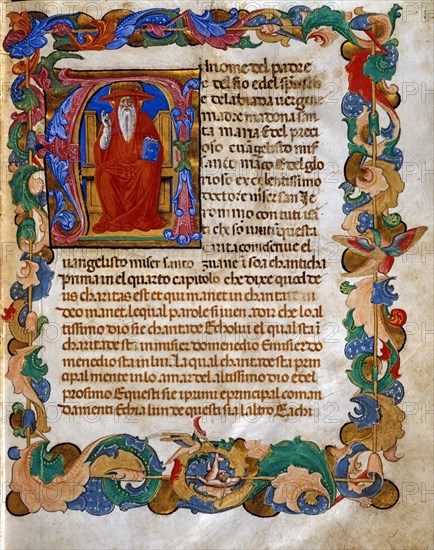 Al nome del padre
e del fio e del spirito
e dela biada vergene
madre madona san
ta maria E del preci
oso evangelisto mis
san co marco E del glo
rioso ex celentissimo
doctore miser san Je
ronimo con tuti isā
ti che so in questa
carita come se vue el
evangelisto miser santo zuane ī soa chanticha
prima in el quarto capitolo che dixe quod de
us charitas est et qui manet in charitati in
deo manet. le qual parole si uien a dir che lo al
tissimo dio sie charita de E cholui el qual sta ī
charita de sta in misier domenedio E misier do
menedio sta in lui. La qual charita de sta prin
cipal mente in lo amar del altissimo dio et el
prosimo E questi sie i primi e principal coman
damenti E chi a lun de questi si a l altro E achi